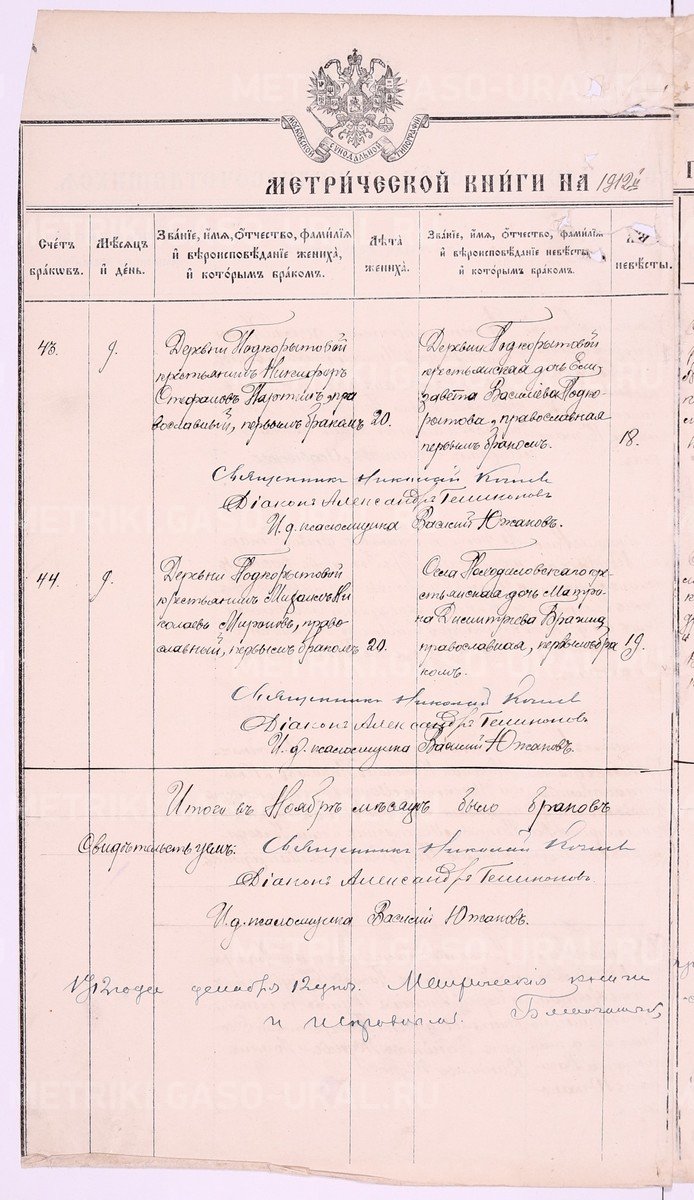 МОСКОВСКОЙ СѴНОДАЛЬНОЙ ТИПОГРАФІИ
МЕТРИ́ЧЕСКОЙ КНИ́ГИ НА 1912й
Сче́тъ бра́ковъ.
Мѣ́сяцъ и҆ де́нь.
Зва́ніе, и҆́мѧ, о҆́тчество, фами́лїѧ и҆ вѣроисповѣ́данїе жениха̀, и҆ кото́рымъ бра́комъ.
Лѣ́та жениха̀.
Зва́нїе, и҆́мѧ, о҆́тчество, фами́лїѧ и҆ вѣроисповѣ́данїе невѣ́сты, и҆ кото́рымъ бра́комъ.
невѣ́сты.
43.
9.
Деревни Подкорытовой
крестьянинъ Никифоръ
Стефановъ Партинъ, пра
вославный, первымъ бракомъ
20.
Деревни Подкорытовой
крестьянская дочь Ели,
завета Василіева Подко-
рытова, православная
первымъ бракомъ.
18.
Священникъ Николай
Діаконъ Александръ
И. д. псаломщика Василій Южаковъ.
44.
9.
Деревни Подкорытовой
крестьянинъ Михаилъ Ни
колаевъ Мироновъ, право-
славный, первымъ бракомъ
20.
Села кре-
стьянская дочь Матро-
на Димитріева
православная, первымъ бра
комъ.
19.
Священникъ Николай
Діаконъ Александръ
И. д. псаломщика Василій Южаковъ.
Итого въ Ноябрѣ мѣсяцѣ было браковъ
Свидѣтельствуемъ: Священникъ Николай
Діаконъ Александръ
И. д. псаломщика Василій Южаковъ.
1912 года декабря 12 дня. Метрическія книги
и
METRIKI.GASO-URAL.RU